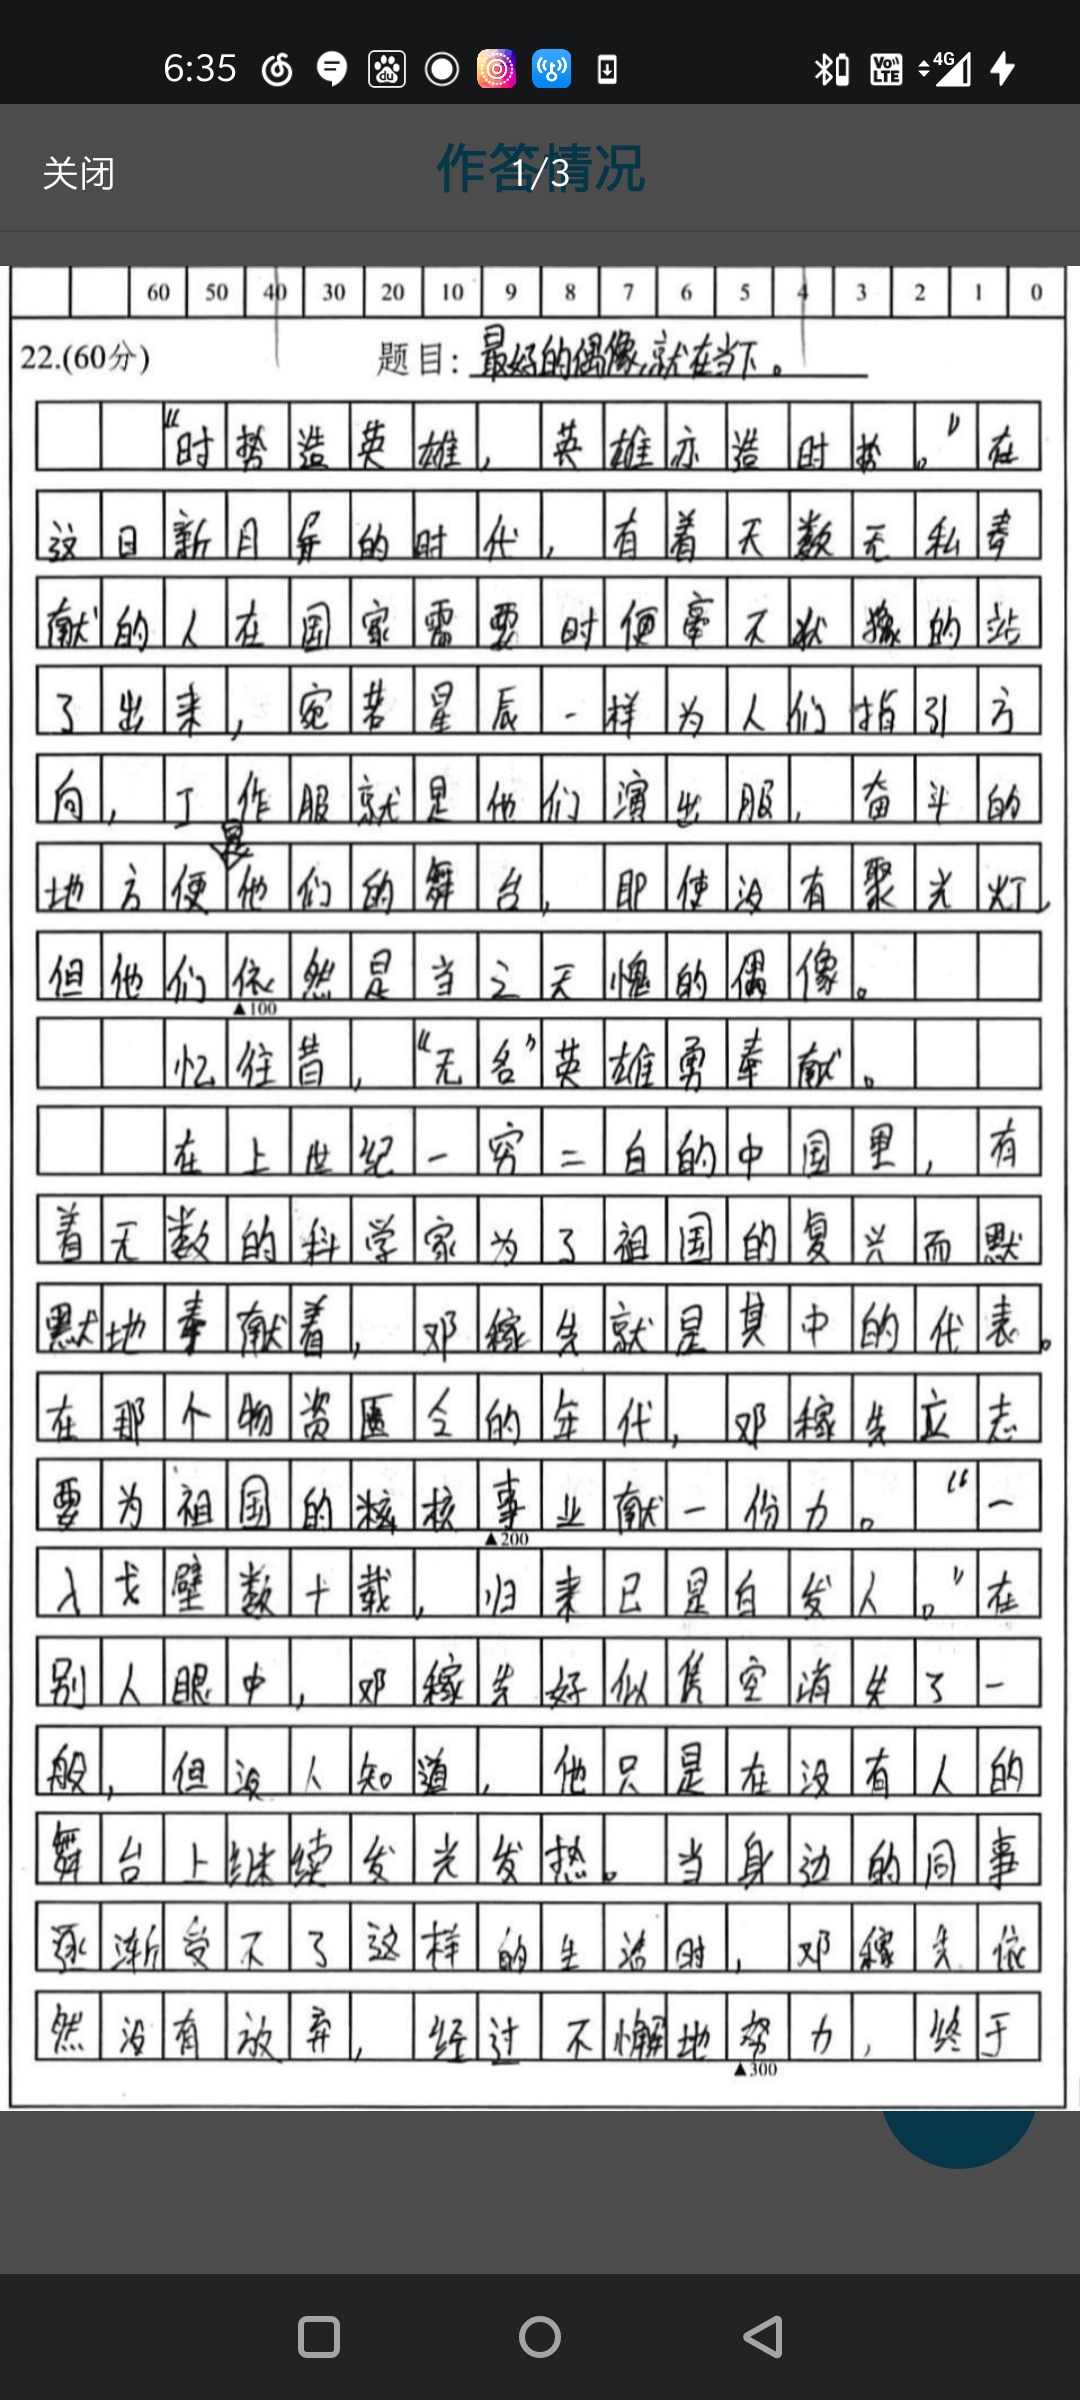 6:35
4G
VoLTE
关闭
作答情况
1/3
60 50 40 30 20 10 9 8 7 6 5 4 3 2 1 0
22.(60分) 题目：最好的偶像,就在当下。
“时势造英雄，英雄亦造时势。”在
这日新月异的时代，有着无数无私奉
献的人在国家需要时便毫不犹豫的站
了出来，宛若星辰一样为人们指引方
向，工作服就是他们演出服，奋斗的
地方便是他们的舞台，即使没有聚光灯，
但他们依然是当之无愧的偶像。
▲100
忆往昔，“无名”英雄勇奉献。
在上世纪一穷二白的中国里，有
着无数的科学家为了祖国的复兴而默
默地奉献着，邓稼先就是其中的代表。
在那个物资匮乏的年代，邓稼先立志
要为祖国的核事业献一份力。“一
▲200
入戈壁数十载，归来已是白发人。”在
别人眼中，邓稼先好似凭空消失了一
般，但没人知道，他只是在没有人的
舞台上继续发光发热。当身边的同事
逐渐受不了这样的生活时，邓稼先依
然没有放弃，经过不懈地努力，终于
▲300